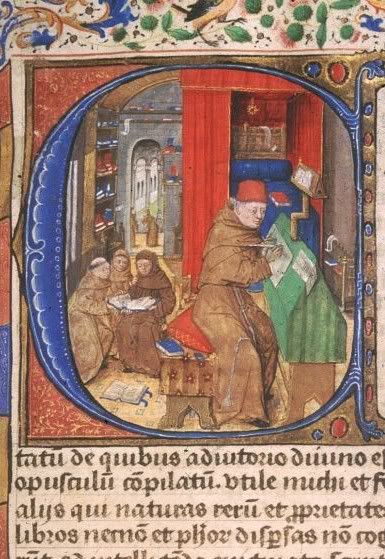 tatū de quibus adiutorio diuino e
opusculū cōpilatū. vtile michi et f
alijs qui naturas rerū et pprietate
libros necnō et phōr disp̄sas nō cog